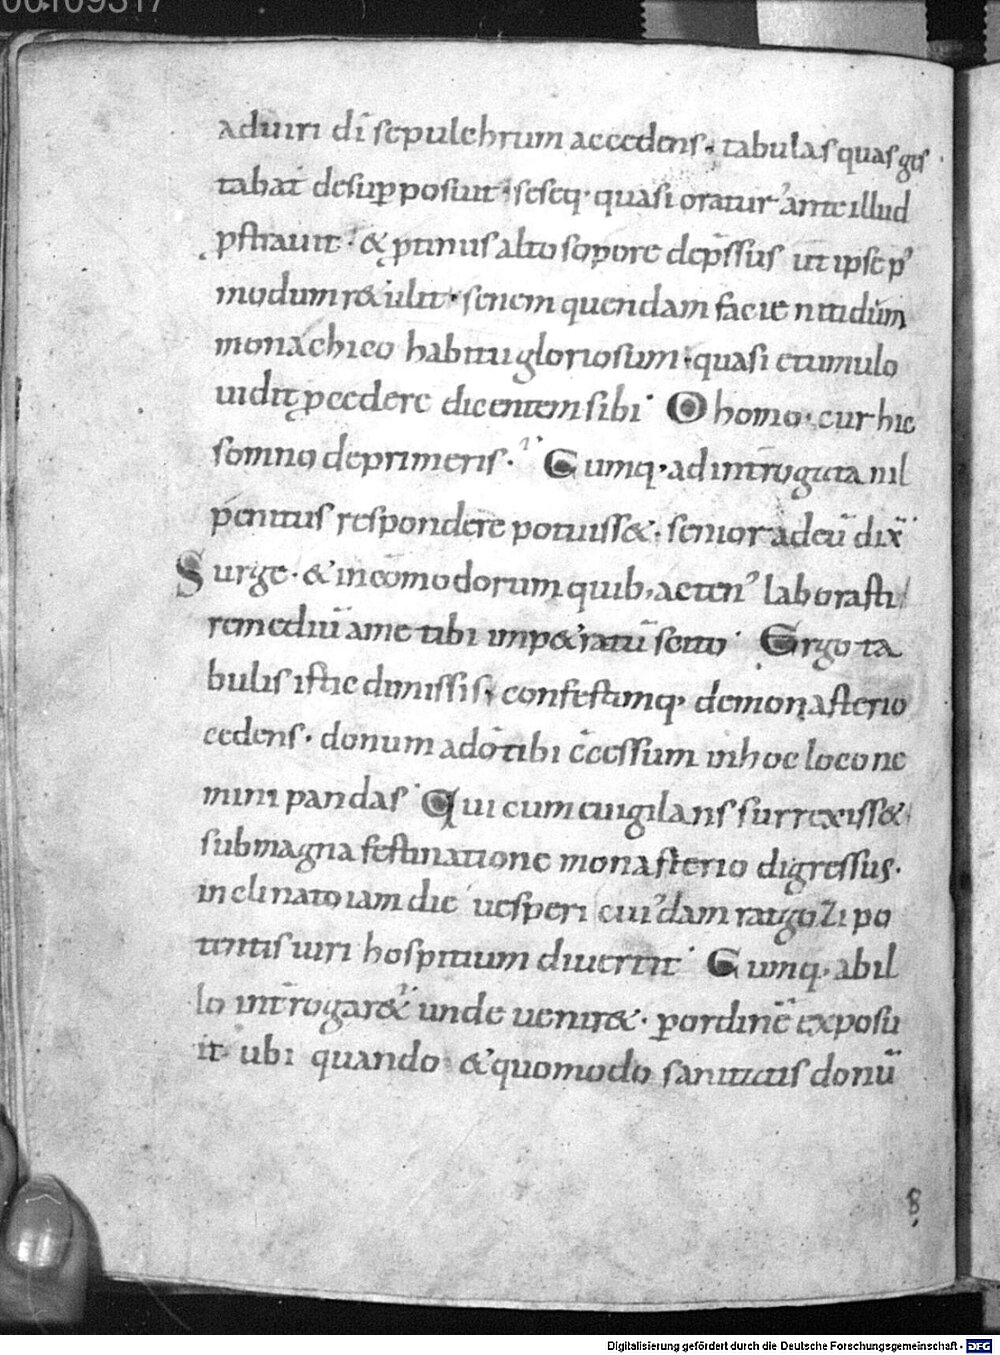 00109317
aduiri dī sepulchrum accedens · tabulas quas ges
tabat desup̱ posuit · seseq· quasi oratur' ante illud
p̱strauit · & ꝓtinus alto sopore dep̄ssus ut ipse p'
modum r&ulit · senem quendam facie nitidum
monachico habitu gloriosum · quasi e tumulo
uidit ꝓcedere dicentem sibi · O homo · cur hic
somno deprimeris · Cumq· ad int̄rogata nil
penitus respondere potuiss& · senior ad eū dix̄
Surge · & incōmodorum quib; acten' laborasti
remediū a me tibi imp&ratū scito · Ergo ta
bulis istic dimissis · confestimq· de monasterio
cedens · donum a dō tibi c̄cessum in hoc loco ne
mini pandas · Qui cum euigilans surrexiss&
sub magna festinatione monasterio digressus ·
inclinato iam die uesperi cui'dam ratgozi po
tentis uiri hospitium diuertit · Cumq· ab il
lo int̄rogar&' unde uenir& · ꝑ ordinē exposu
it ubi quando & quomodo sanitatis donū
8
Digitalisierung gefördert durch die Deutsche Forschungsgemeinschaft - DFG